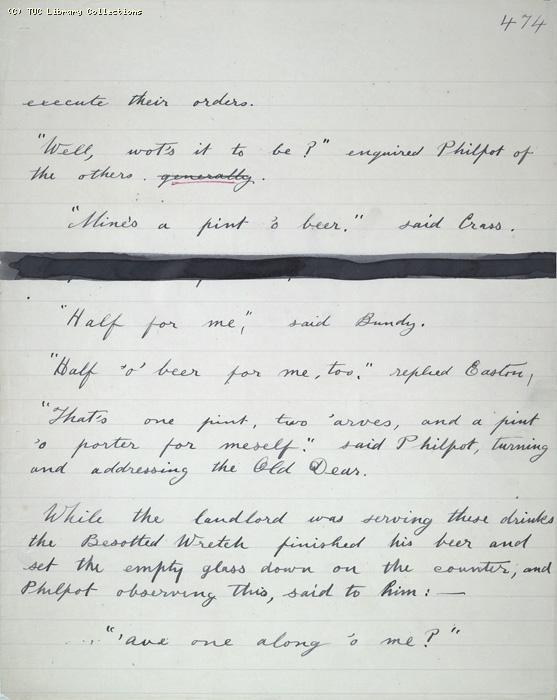 (C) TUC Library Collections
474
execute their orders.
"Well, wot's it to be?" enquired Philpot of
the others. generally.
"Mine's a pint 'o beer." said Crass.
"Half for me," said Bundy.
"Half 'o' beer for me, too." replied Easton,
"That's one pint, two 'arves, and a pint
'o porter for meself." said Philpot, turning
and addressing the Old Dear.
While the landlord was serving these drinks
the Besotted Wretch finished his beer and
set the empty glass down on the counter, and
Philpot observing this, said to him: —
"'ave one along 'o me?"